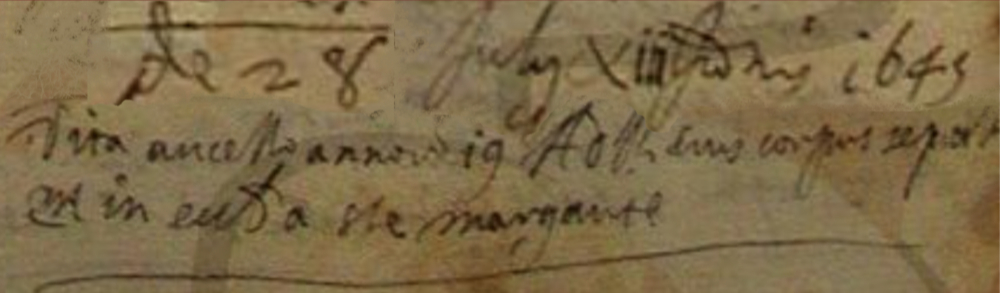 de 28 July Xiii Indnis 1645
Vita ancella annorũ 19 eius corpus sepult
est in eccl a ste margarite